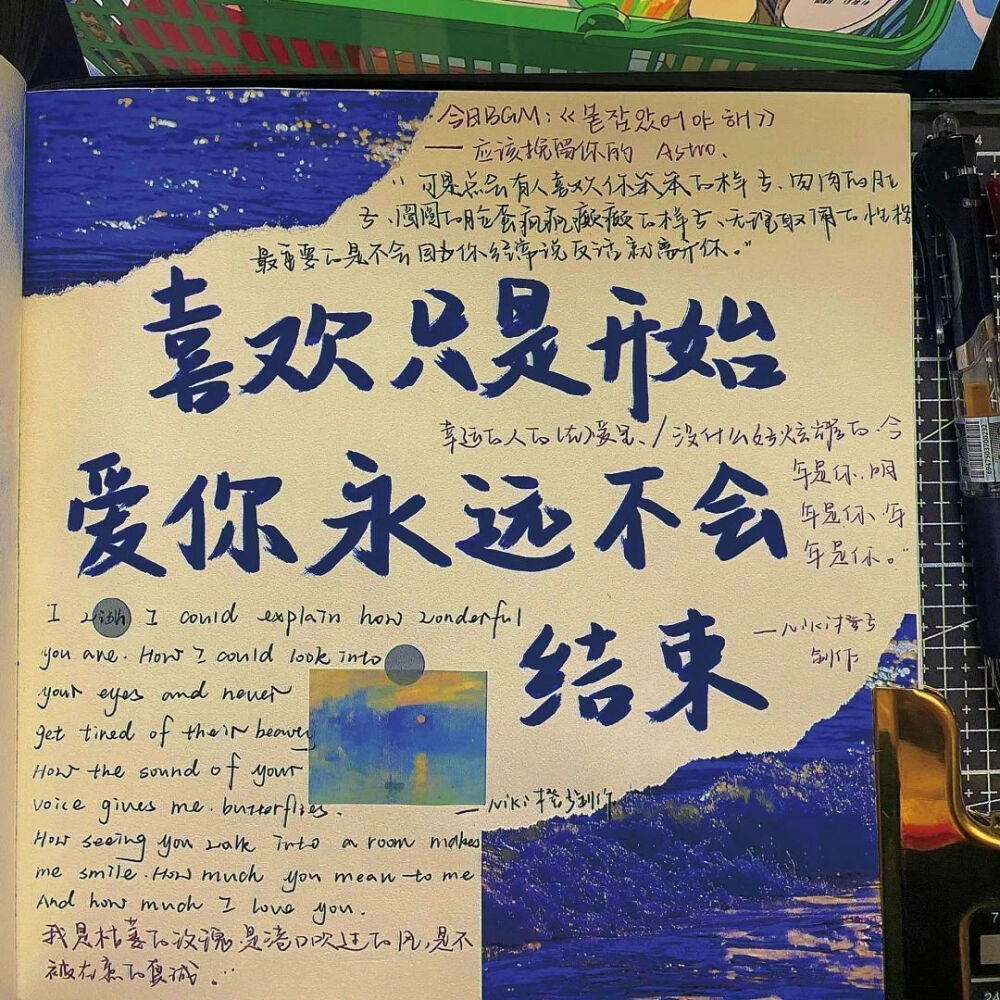 今日BGM:《붙잡았어야 해》
— 应该挽留你的 Astro.
"可是总会有人喜欢你笨笨的样子、肉肉的肚
子、圆圆的脸蛋疯疯癫癫的样子、无理取闹的性格
最重要的是不会因为你经常说反话就离开你。"
喜欢只是开始
幸运的人的 爱是、/没什么好炫耀的.今
年是你.明
年是你、年
年是你。"
爱你永远不会
结束
—Niki橙子
创作
I wish I could explain how wonderful
you are. How I could look into
your eyes and never
get tired of their beauty
How the sound of your
voice gives me butterflies.
— Niki橙子创作
How seeing you walk into a room makes
me smile. How much you mean to me
And how much I love you.
我是枯萎的玫瑰.是港口吹过的风,是不
被在意的真诚。"